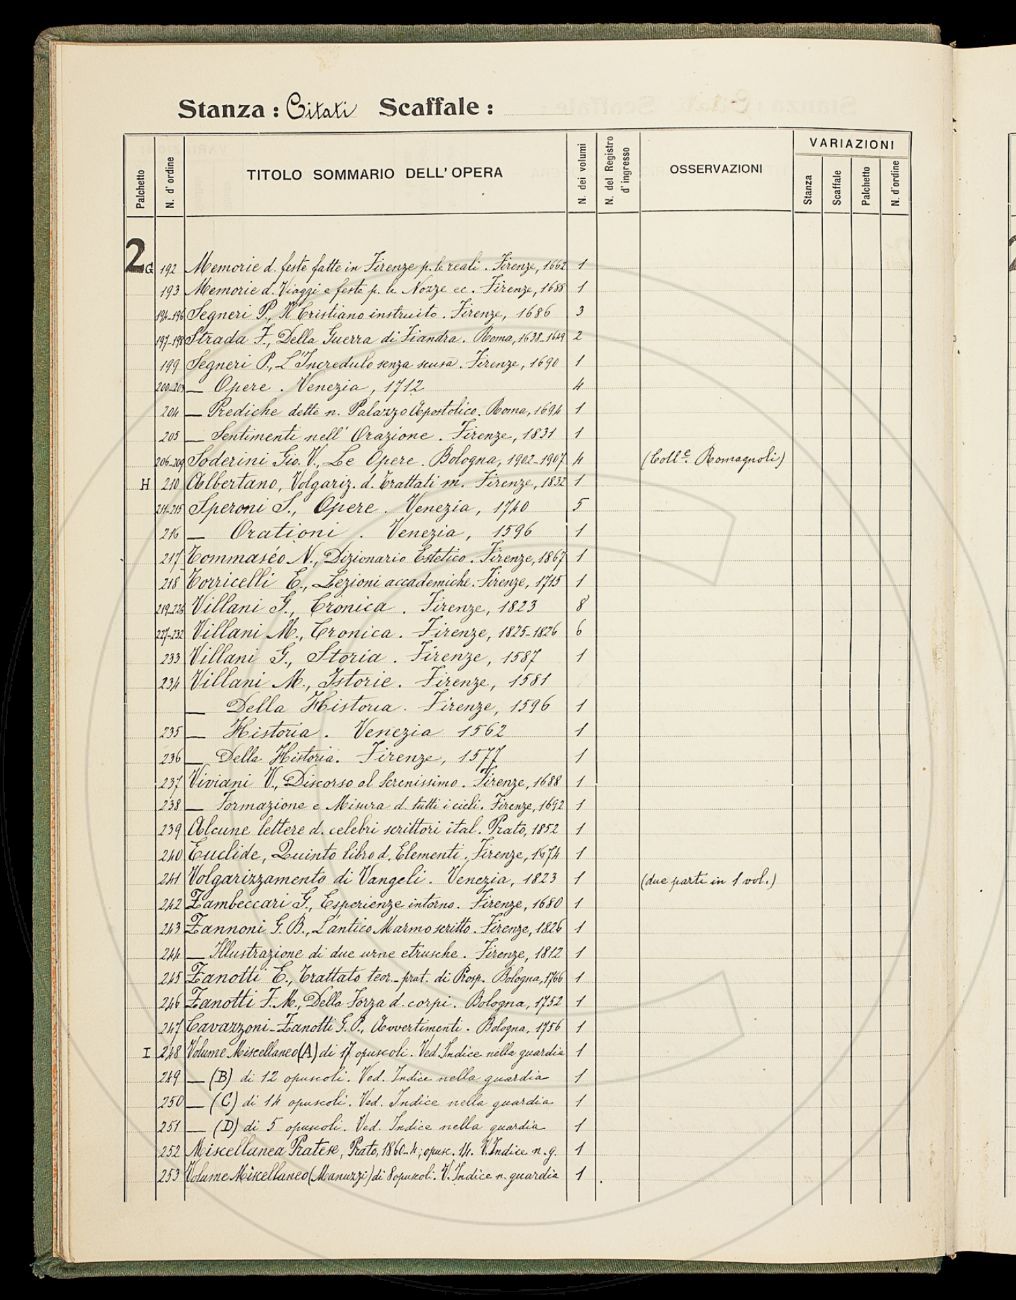 Stanza: Citati Scaffale:
Palchetto N. d'ordine TITOLO SOMMARIO DELL'OPERA N. dei volumi N. del Registro d'ingresso OSSERVAZIONI VARIAZIONI Stanza Scaffale Palchetto N. d'ordine
2 G 192 Memorie d. feste fatte in Firenze p. le reali. Firenze, 1662 1
193 Memorie d. Viaggi e feste p. le Nozze ec. Firenze, 1688 1
194-196 Segneri P., Il Cristiano instruito. Firenze, 1686 3
197-198 Strada F., Della Guerra di Fiandra. Roma, 1638-1649 2
199 Segneri P., L'Incredulo senza scusa. Firenze, 1690 1
200-203 — Opere. Venezia, 1712 4
204 — Prediche dette n. Palazzo Apostolico. Roma, 1694 1
205 — Sentimenti nell'Orazione. Firenze, 1831 1
206-209 Soderini Gio. V., Le Opere. Bologna, 1902-1907 4 (Coll.e Romagnoli)
H 210 Albertano, Volgariz. d. Trattati m. Firenze, 1832 1
211-215 Speroni S., Opere. Venezia, 1740 5
216 — Orationi. Venezia, 1596 1
217 Tommaséo N., Dizionario Estetico. Firenze, 1867 1
218 Torricelli E., Lezioni accademiche. Firenze, 1715 1
219-226 Villani G., Cronica. Firenze, 1823 8
227-232 Villani M., Cronica. Firenze, 1825-1826 6
233 Villani G., Storia. Firenze, 1587 1
234 Villani M., Istorie. Firenze, 1581
— Della Historia. Firenze, 1596 1
235 — Historia. Venezia 1562 1
236 — Della Historia. Firenze, 1577 1
237 Viviani V., Discorso al Serenissimo. Firenze, 1688 1
238 — Formazione e Misura d. tutti i cieli. Firenze, 1692 1
239 Alcune lettere d. celebri scrittori ital. Prato, 1852 1
240 Euclide, Quinto libro d. Elementi. Firenze, 1674 1
241 Volgarizzamento di Vangeli. Venezia, 1823 1 (due parti in 1 vol.)
242 Zambeccari G., Esperienze intorno. Firenze, 1680 1
243 Zannoni G. B., L'antico Marmo scritto. Firenze, 1826 1
244 — Illustrazione di due urne etrusche. Firenze, 1812 1
245 Zanotti E., Trattato teor.-prat. di Prosp. Bologna, 1766 1
246 Zanotti F. M., Della Forza d. corpi. Bologna, 1752 1
247 Cavazzoni-Zanotti G. P., Avvertimenti. Bologna, 1756 1
I 248 Volume Miscellaneo (A) di 17 opuscoli. Ved. Indice nella guardia 1
249 — (B) di 12 opuscoli. Ved. Indice nella guardia 1
250 — (C) di 14 opuscoli. Ved. Indice nella guardia 1
251 — (D) di 5 opuscoli. Ved. Indice nella guardia 1
252 Miscellanea Pratese, Prato, 1860-4; opusc. 14. V. Indice n. g. 1
253 Volume Miscellaneo (Manuzzi) di 8 opuscoli. V. Indice n. guardia 1